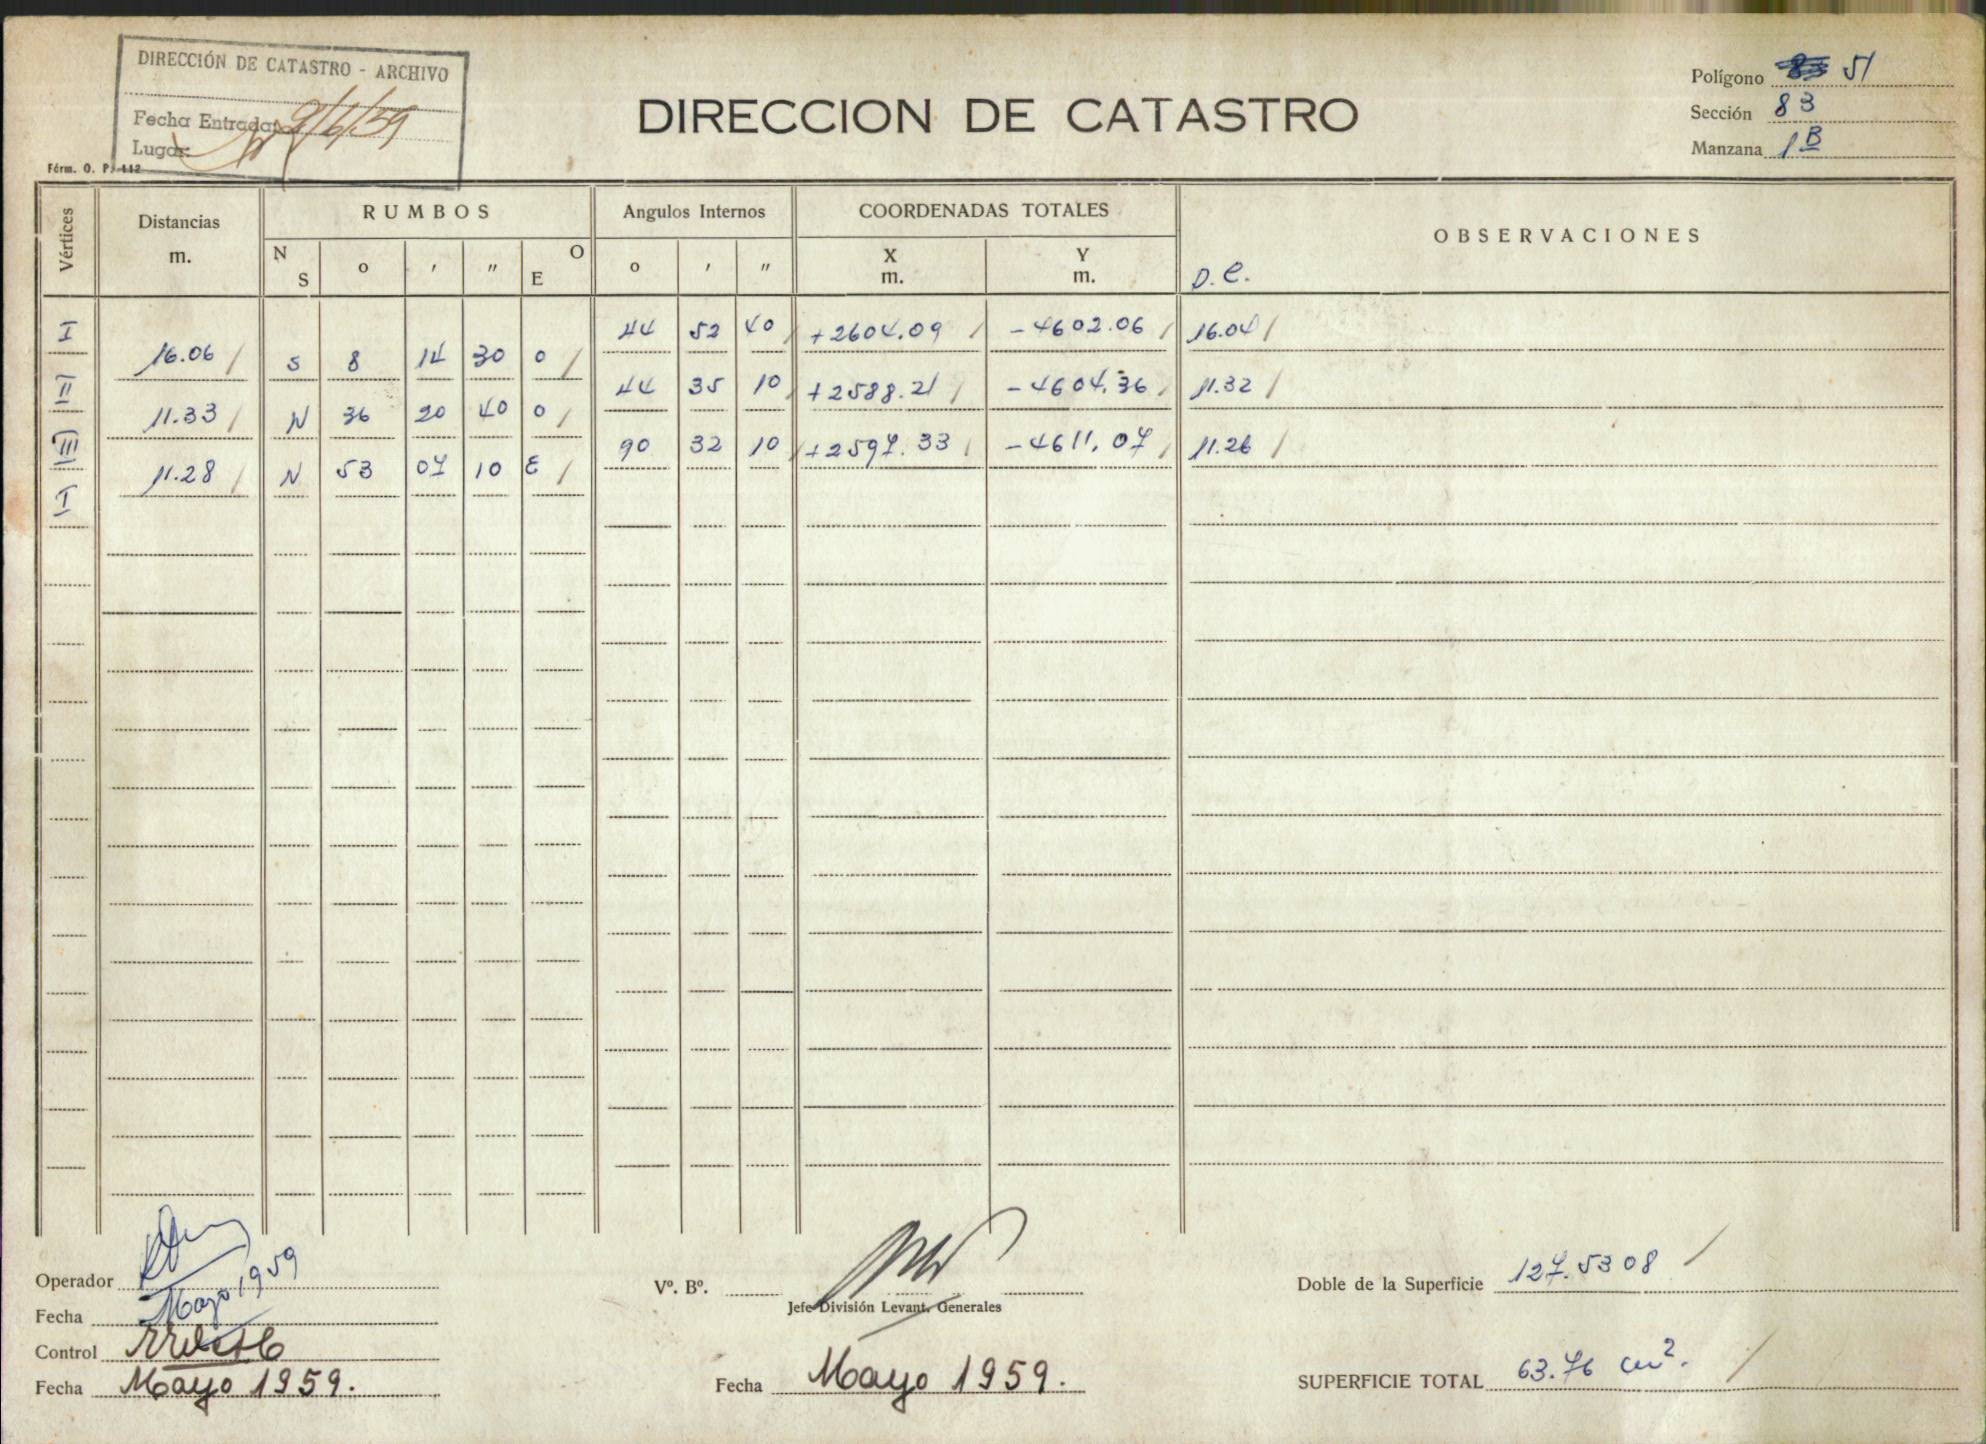 DIRECCIÓN DE CATASTRO - ARCHIVO
Fecha Entrada: 9/6/59
Lugar:
Fórm. O. P. 112
DIRECCION DE CATASTRO
Polígono 51
Sección 83
Manzana 1B
Vértices Distancias m. RUMBOS Angulos Internos COORDENADAS TOTALES OBSERVACIONES
N S o ' " E O o ' " X m. Y m. D.C.
I 44 52 40 +2604.09 -4602.06 16.04
16.06 S 8 14 30 O
II 44 35 10 +2588.21 -4604.36 11.32
11.33 N 36 20 40 O
III 90 32 10 +2597.33 -4611.07 11.26
11.28 N 53 07 10 E
I
Operador
Fecha Mayo, 1959
Control
Fecha Mayo 1959.
Vº. Bº.
Jefe División Levant. Generales
Fecha Mayo 1959.
Doble de la Superficie 127.5308
SUPERFICIE TOTAL 63.76 cm².